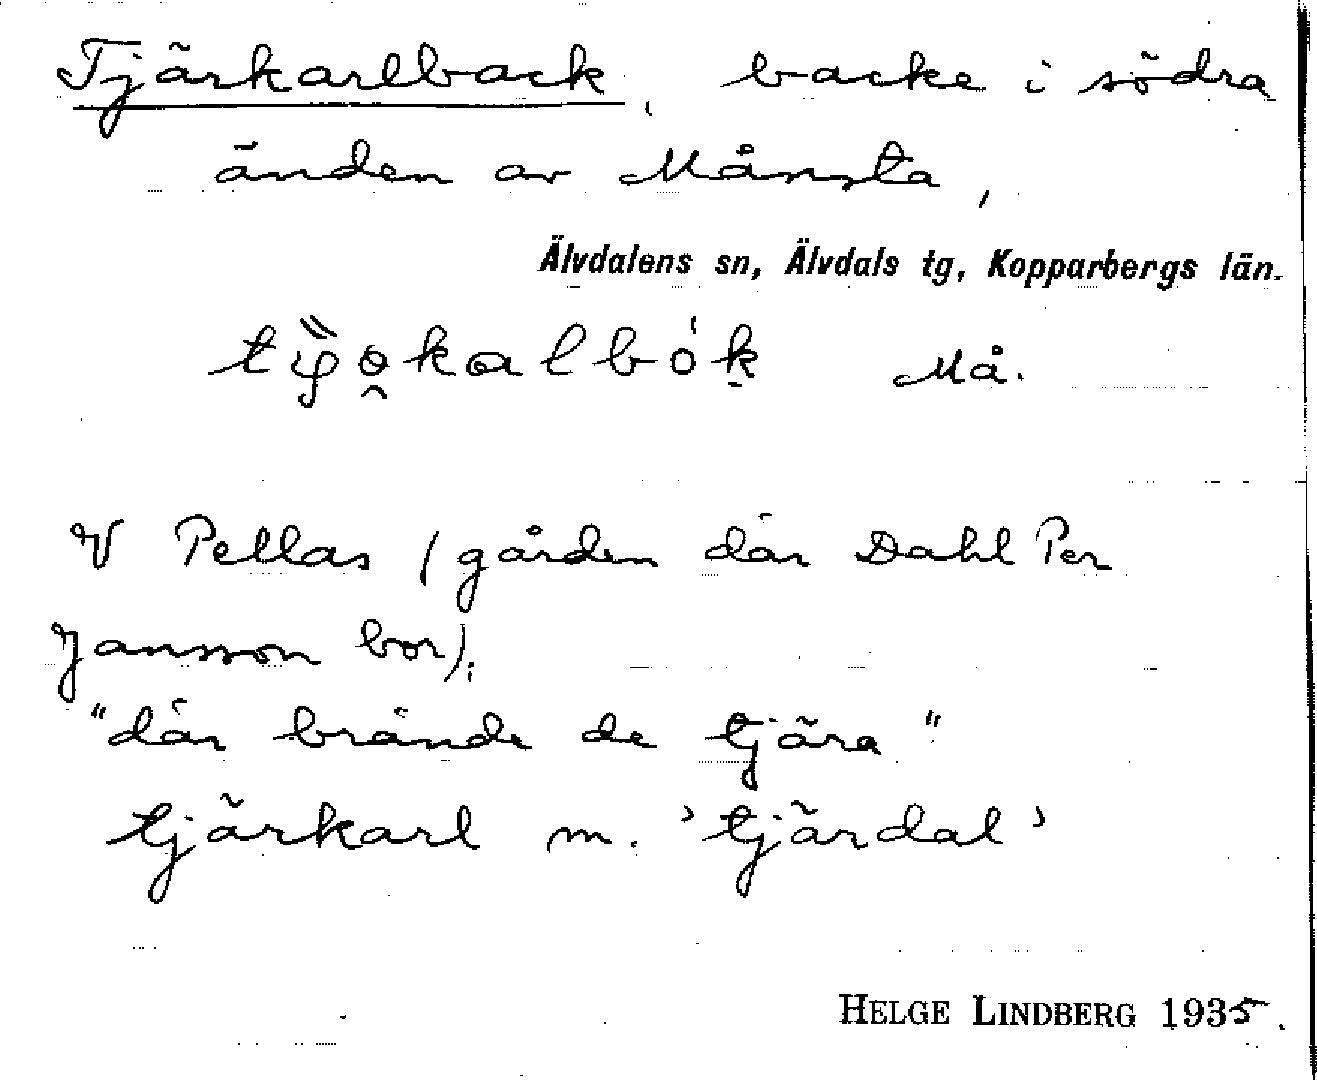 Tjärkarlback, backe i södra
änden av Månsta,
Älvdalens sn, Älvdals tg, Kopparbergs län.
Må.
V Pellas (gården där Dahl Per
Jansson bor);
"där brände de tjära"
tjärkarl m. 'tjärdal'
HELGE LINDBERG 1935.